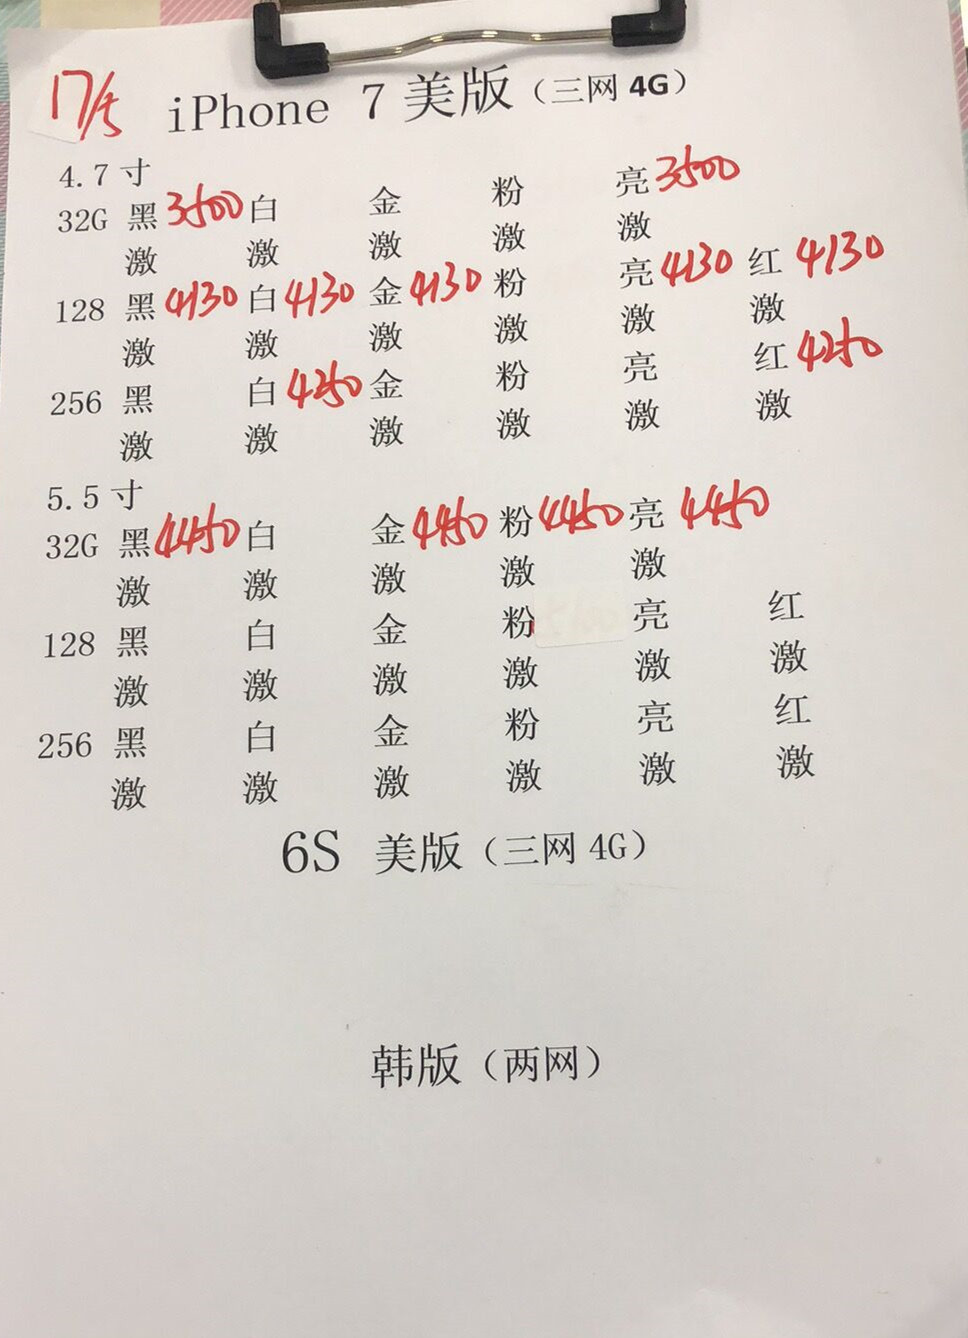 17/5
iPhone 7 美版（三网 4G）
4.7 寸
32G 黑 3500 白 金 粉 亮 3500
激 激 激 激 激
128 黑 4130 白 4130 金 4130 粉 亮 4130 红 4130
激 激 激 激 激 激
256 黑 白 4250 金 粉 亮 红 4250
激 激 激 激 激 激
5.5 寸
32G 黑 4450 白 金 4450 粉 4450 亮 4450
激 激 激 激 激
128 黑 白 金 粉 亮 红
激 激 激 激 激 激
256 黑 白 金 粉 亮 红
激 激 激 激 激 激
6S 美版（三网 4G）
韩版（两网）